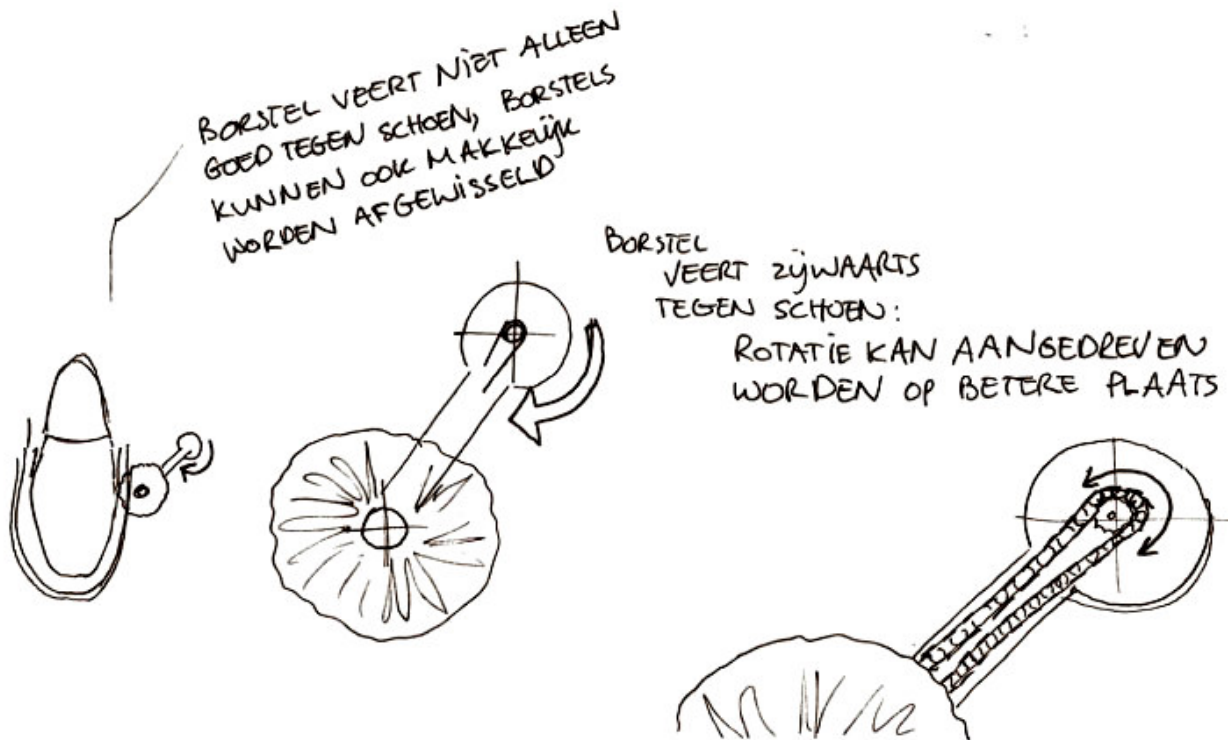 BORSTEL VEERT NIET ALLEEN
GOED TEGEN SCHOEN, BORSTELS
KUNNEN OOK MAKKELIJK
WORDEN AFGEWISSELD
BORSTEL
VEERT ZIJWAARTS
TEGEN SCHOEN:
ROTATIE KAN AANGEDREVEN
WORDEN OP BETERE PLAATS